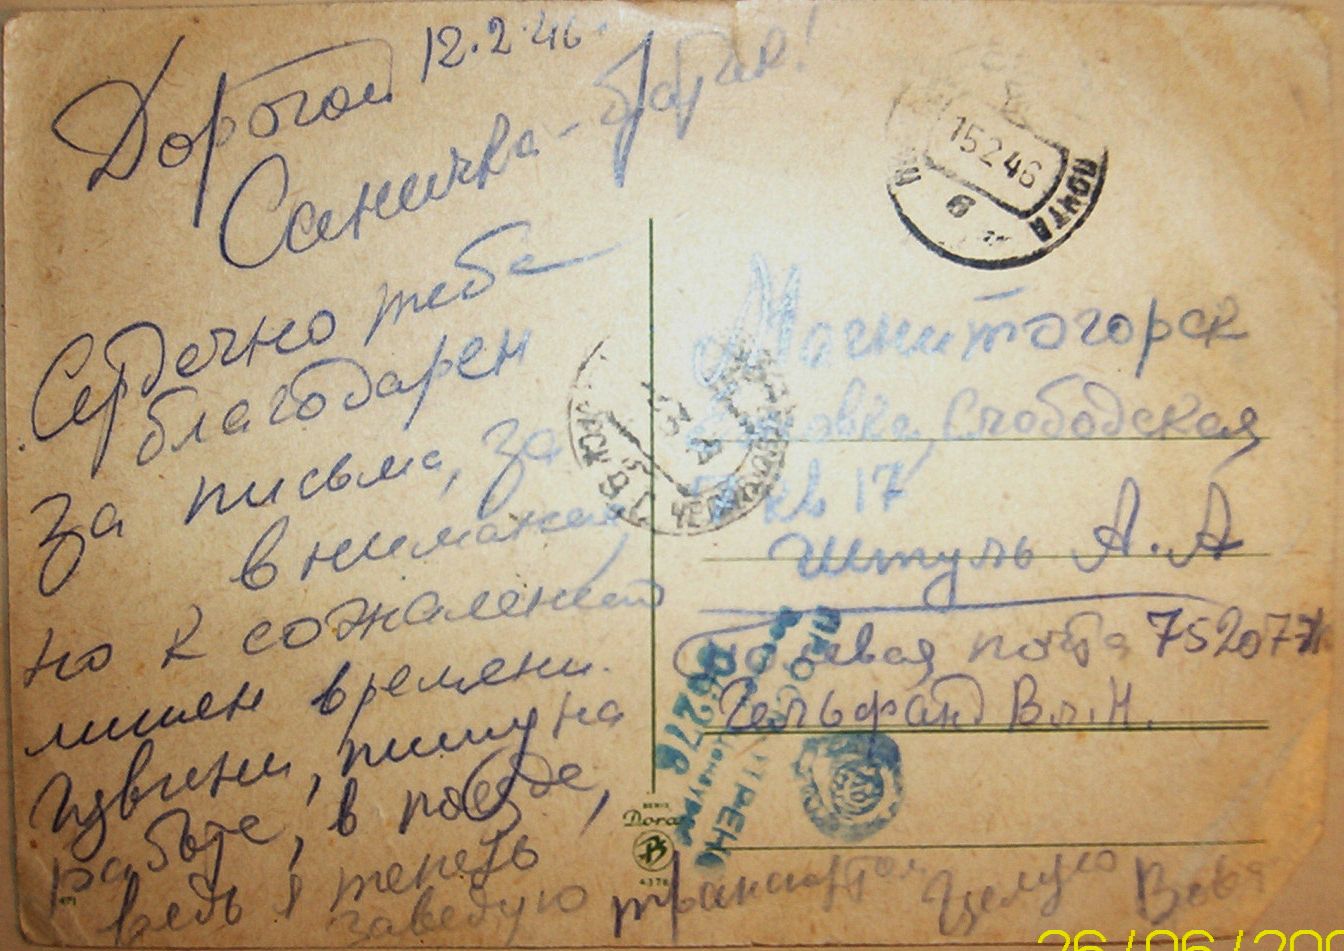 12.2.46.
Дорогой
Саничка-братик!
Сердечно тебе
благодарен
за письма, за
внимание
но к сожалению
лишен времени.
Извини, пишу на
работе, в поезде,
ведь я теперь
заведую транспортом
Целую Вова
ПОЧТА
15246
Магнитогорск
Слободская
кв 17
Штуль А.А
Полевая почта 75207Ж
Гельфанд Вл.Н.
ПРОСМОТРЕНО
Военной Цензурой
06278
Dora
4376
471
26/06/200